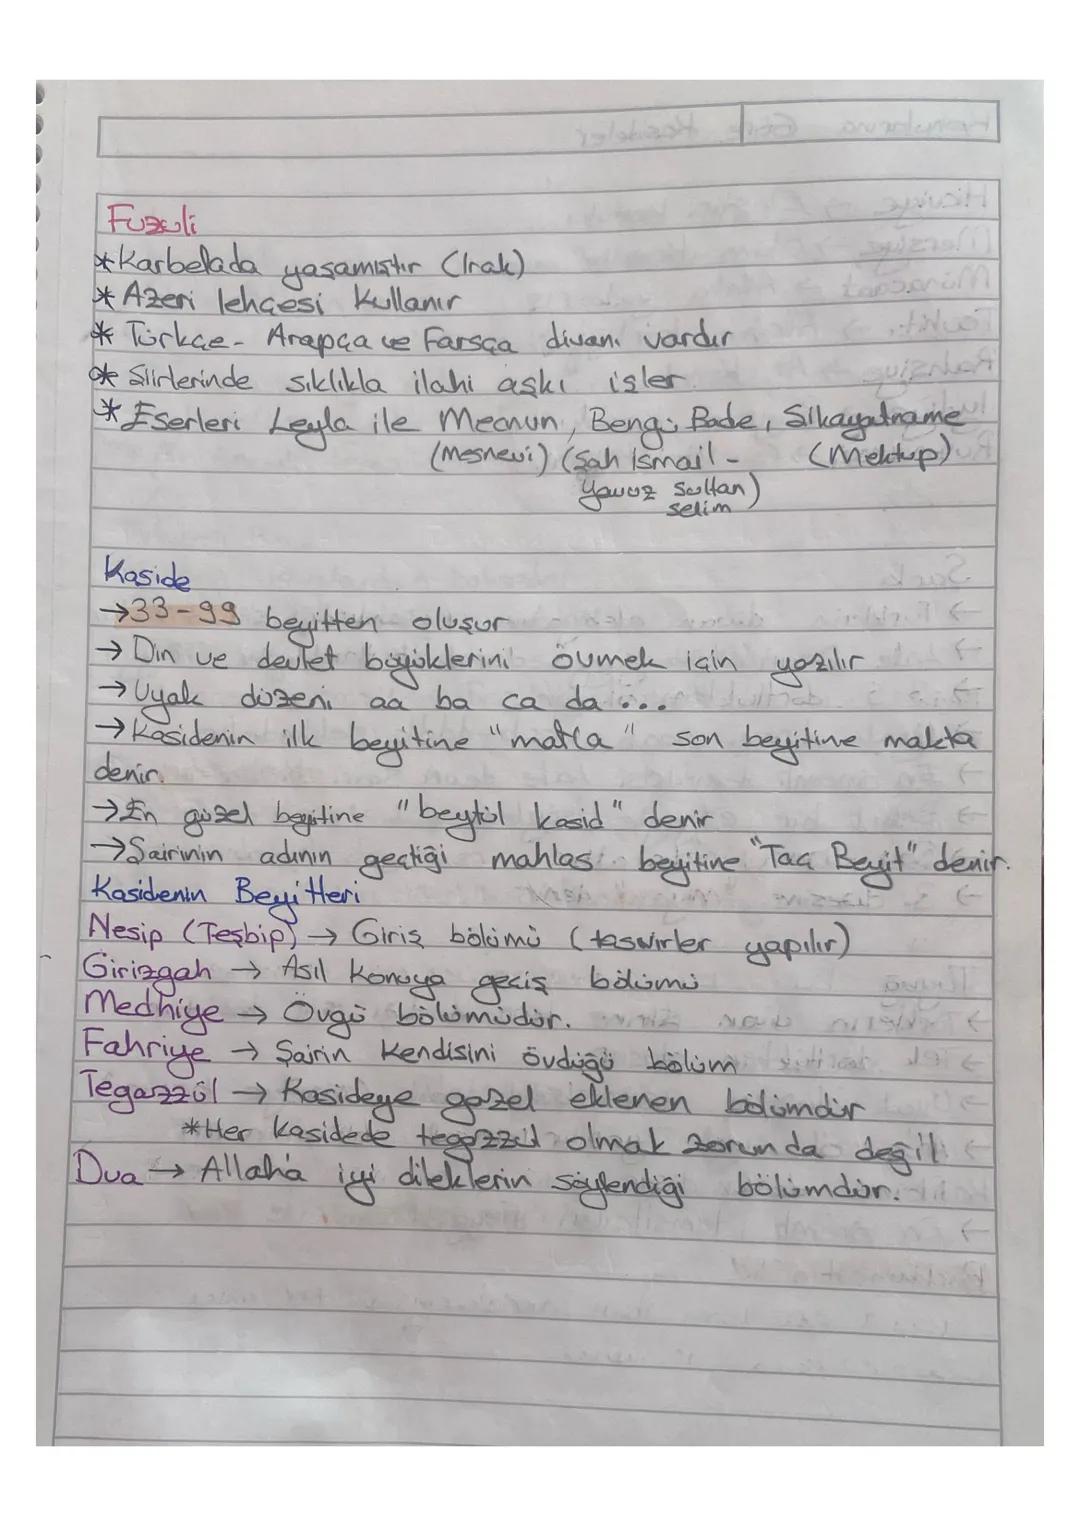 Fuzuli
*Karbelada yaşamıştır (Irak)
*Azeri lehçesi kullanır
* Türkçe- Arapça ve Farsça divanı vardır
* Şiirlerinde sıklıkla ilahi aşkı işler
*Eserleri Leyla ile Mecnun, Beng-i Bade, Şikayatname
(Mesnevi) (Şah İsmail - (Mektup)
Yavuz Sultan)
Selim
Kaside
→33-99 beyitten oluşur
→ Din ve devlet büyüklerini övmek için yazılır
→ Uyak düzeni aa ba ca da ...
→ Kasidenin ilk beyitine "matla" son beyitine makta
denir.
→En güzel beyitine "beytül kasid" denir
→Şairinin adının geçtiği mahlas beyitine "Taç Beyit" denir.
Kasidenin Beyitleri
Nesip (Teşbip) → Giriş bölümü (tasvirler yapılır)
Girizgah → Asıl konuya geçiş bölümü
Medhiye → Övgü bölümüdür.
Fahriye → Şairin kendisini övdüğü bölüm
Tegazzül → Kasideye gazel eklenen bölümdür
*Her kasidede tegazzül olmak zorunda değil
Dua → Allaha iyi dileklerin söylendiği bölümdür.